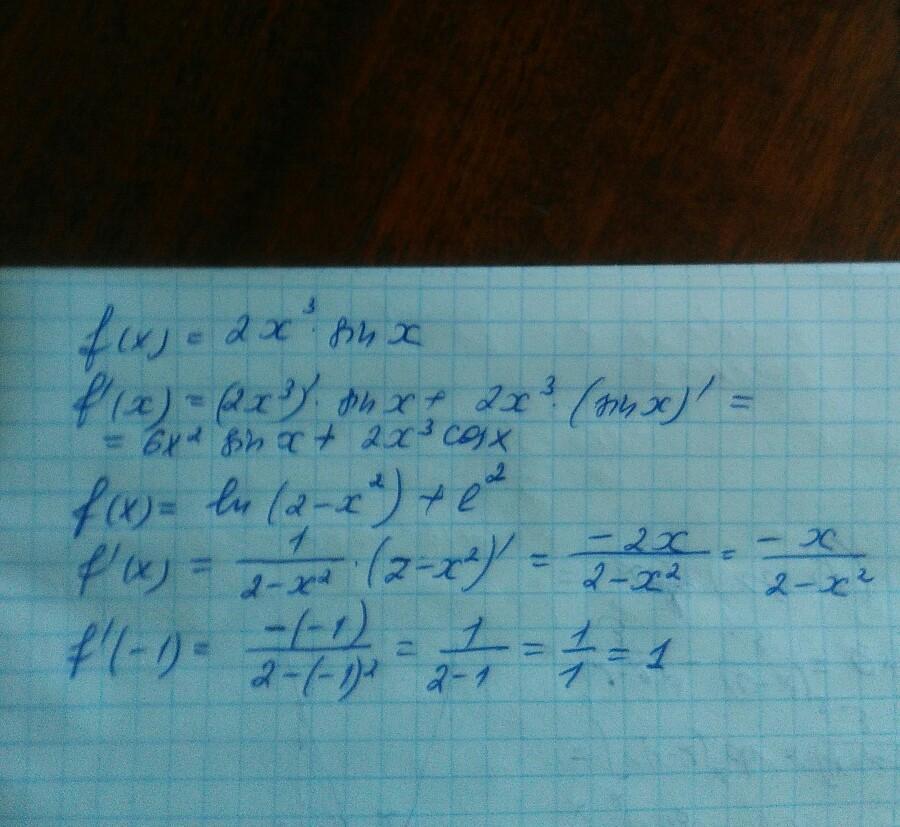 f(x) = 2x³ · sin x
f'(x) = (2x³)' · sin x + 2x³ · (sin x)' =
= 6x² sin x + 2x³ cos x
f(x) = ln (2-x²) + e²
f'(x) = 1/(2-x²) · (2-x²)' = -2x/(2-x²) = -x/(2-x²)
f'(-1) = -(-1)/(2-(-1)²) = 1/(2-1) = 1/1 = 1